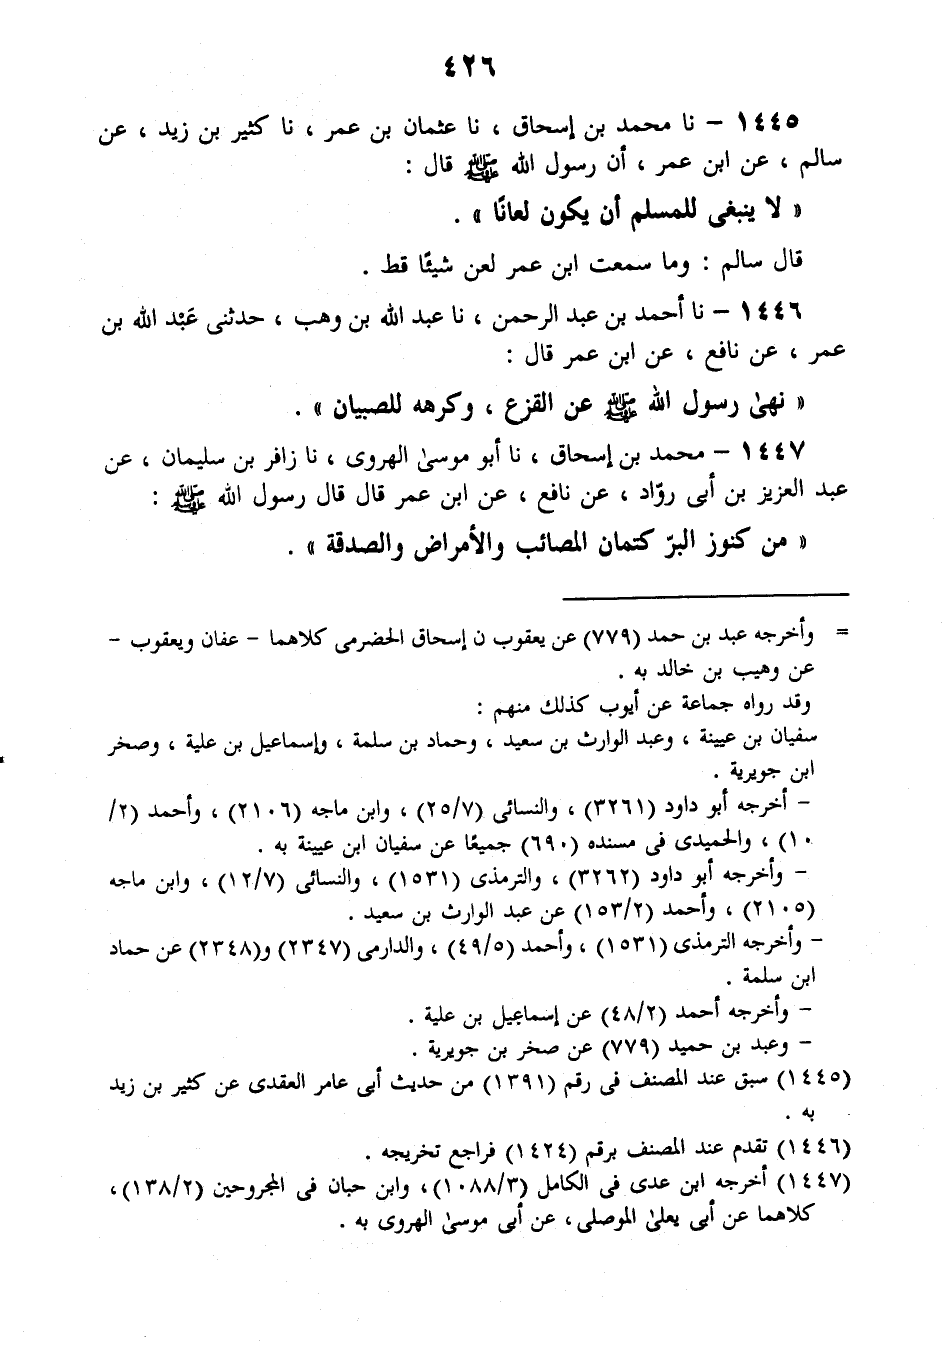 ٤٢٦
١٤٤٥ – نا محمد بن إسحاق ، نا عثمان بن عمر ، نا كثير بن زيد ، عن
سالم ، عن ابن عمر ، أن رسول الله ﷺ قال :
« لا ينبغى للمسلم أن يكون لعانًا » .
قال سالم : وما سمعت ابن عمر لعن شيئًا قط .
١٤٤٦ – نا أحمد بن عبد الرحمن ، نا عبد الله بن وهب ، حدثنى عَبْد الله بن
عمر ، عن نافع ، عن ابن عمر قال :
« نهىٰ رسول الله ﷺ عن القزع ، وكرهه للصبيان » .
١٤٤٧ – محمد بن إسحاق ، نا أبو موسىٰ الهروى ، نا زافر بن سليمان ، عن
عبد العزيز بن أبى روّاد ، عن نافع ، عن ابن عمر قال قال رسول الله ﷺ :
« من كنوز البرّ كتمان المصائب والأمراض والصدقة » .
= وأخرجه عبد بن حمد (٧٧٩) عن يعقوب ن إسحاق الحضرمى كلاهما – عفان ويعقوب –
عن وهيب بن خالد به .
وقد رواه جماعة عن أيوب كذلك منهم :
سفيان بن عيينة ، وعبد الوارث بن سعيد ، وحماد بن سلمة ، وإسماعيل بن علية ، وصخر
ابن جويرية .
– أخرجه أبو داود (٣٢٦١) ، والنسائى (٢٥/٧) ، وابن ماجه (٢١٠٦) ، وأحمد (٢/
١٠) ، والحميدى فى مسنده (٦٩٠) جميعًا عن سفيان ابن عيينة به .
– وأخرجه أبو داود (٣٢٦٢) ، والترمذى (١٥٣١) ، والنسائى (١٢/٧) ، وابن ماجه
(٢١٠٥) ، وأحمد (١٥٣/٢) عن عبد الوارث بن سعيد .
– وأخرجه الترمذى (١٥٣١) ، وأحمد (٤٩/٥) ، والدارمى (٢٣٤٧) و(٢٣٤٨) عن حماد
ابن سلمة .
– وأخرجه أحمد (٤٨/٢) عن إسماعيل بن علية .
– وعبد بن حميد (٧٧٩) عن صخر بن جويرية .
(١٤٤٥) سبق عند المصنف فى رقم (١٣٩١) من حديث أبى عامر العقدى عن كثير بن زيد
به .
(١٤٤٦) تقدم عند المصنف برقم (١٤٢٤) فراجع تخريجه .
(١٤٤٧) أخرجه ابن عدى فى الكامل (١٠٨٨/٣)، وابن حبان فى المجروحين (١٣٨/٢)،
كلاهما عن أبى يعلىٰ الموصلى، عن أبى موسىٰ الهروى به .